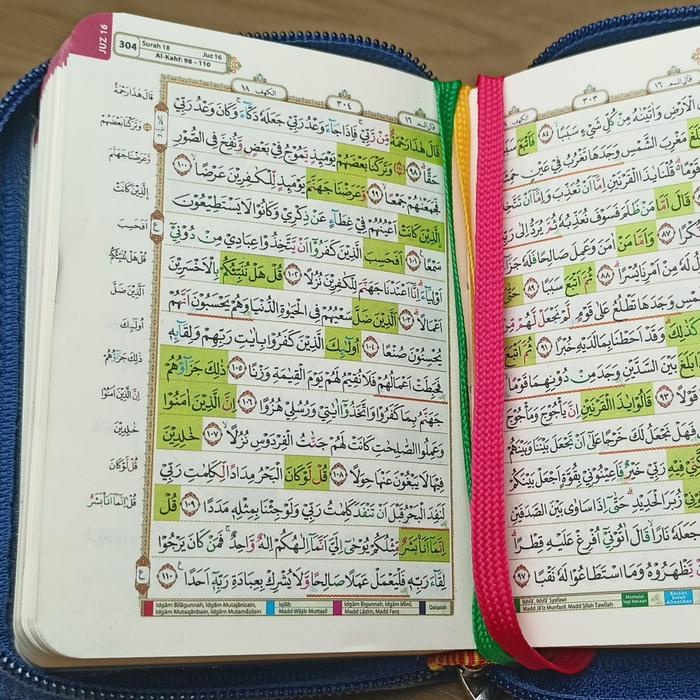 JUZ 16
304
Surah 18 Juz 16
Al-Kahf: 98 – 110
قال الم ١٦ ٣٠٤ الكهف ١٨
قَالَ هٰذَا رَحْمَةٌ مِّنْ رَّبِّيْۚ فَاِذَا جَاۤءَ وَعْدُ رَبِّيْ جَعَلَهٗ دَكَّاۤءَۚ وَكَانَ وَعْدُ رَبِّيْ
حَقًّاۗ ﴿٩٨﴾ ۞ وَتَرَكْنَا بَعْضَهُمْ يَوْمَىِٕذٍ يَّمُوْجُ فِيْ بَعْضٍ وَّنُفِخَ فِى الصُّوْرِ
فَجَمَعْنٰهُمْ جَمْعًاۙ ﴿٩٩﴾ وَعَرَضْنَا جَهَنَّمَ يَوْمَىِٕذٍ لِّلْكٰفِرِيْنَ عَرْضًاۙ ﴿١٠٠﴾
الَّذِيْنَ كَانَتْ اَعْيُنُهُمْ فِيْ غِطَاۤءٍ عَنْ ذِكْرِيْ وَكَانُوْا لَا يَسْتَطِيْعُوْنَ
سَمْعًا ﴿١٠١﴾ اَفَحَسِبَ الَّذِيْنَ كَفَرُوْٓا اَنْ يَّتَّخِذُوْا عِبَادِيْ مِنْ دُوْنِيْٓ
اَوْلِيَاۤءَۗ اِنَّآ اَعْتَدْنَا جَهَنَّمَ لِلْكٰفِرِيْنَ نُزُلًا ﴿١٠٢﴾ قُلْ هَلْ نُنَبِّئُكُمْ بِالْاَخْسَرِيْنَ
اَعْمَالًاۗ ﴿١٠٣﴾ اَلَّذِيْنَ ضَلَّ سَعْيُهُمْ فِى الْحَيٰوةِ الدُّنْيَا وَهُمْ يَحْسَبُوْنَ اَنَّهُمْ
يُحْسِنُوْنَ صُنْعًا ﴿١٠٤﴾ اُولٰۤىِٕكَ الَّذِيْنَ كَفَرُوْا بِاٰيٰتِ رَبِّهِمْ وَلِقَاۤىِٕهٖ
فَحَبِطَتْ اَعْمَالُهُمْ فَلَا نُقِيْمُ لَهُمْ يَوْمَ الْقِيٰمَةِ وَزْنًا ﴿١٠٥﴾ ذٰلِكَ جَزَاۤؤُهُمْ
جَهَنَّمُ بِمَا كَفَرُوْا وَاتَّخَذُوْٓا اٰيٰتِيْ وَرُسُلِيْ هُزُوًا ﴿١٠٦﴾ اِنَّ الَّذِيْنَ اٰمَنُوْا
وَعَمِلُوا الصّٰلِحٰتِ كَانَتْ لَهُمْ جَنّٰتُ الْفِرْدَوْسِ نُزُلًاۙ ﴿١٠٧﴾ خٰلِدِيْنَ
فِيْهَا لَا يَبْغُوْنَ عَنْهَا حِوَلًا ﴿١٠٨﴾ قُلْ لَّوْ كَانَ الْبَحْرُ مِدَادًا لِّكَلِمٰتِ رَبِّيْ
لَنَفِدَ الْبَحْرُ قَبْلَ اَنْ تَنْفَدَ كَلِمٰتُ رَبِّيْ وَلَوْ جِئْنَا بِمِثْلِهٖ مَدَدًا ﴿١٠٩﴾ قُلْ
اِنَّمَآ اَنَا۠ بَشَرٌ مِّثْلُكُمْ يُوْحٰٓى اِلَيَّ اَنَّمَآ اِلٰهُكُمْ اِلٰهٌ وَّاحِدٌۚ فَمَنْ كَانَ يَرْجُوْا
لِقَاۤءَ رَبِّهٖ فَلْيَعْمَلْ عَمَلًا صَالِحًا وَّلَا يُشْرِكْ بِعِبَادَةِ رَبِّهٖٓ اَحَدًا ﴿١١٠﴾
قَالَ هٰذَا رَحْمَةٌ
وَتَرَكْنَا بَعْضَهُمْ
وَعَرَضْنَا جَهَنَّمَ
الَّذِيْنَ كَانَتْ
اَفَحَسِبَ
قُلْ هَلْ نُنَبِّئُكُمْ
اَلَّذِيْنَ ضَلَّ
اُولٰۤىِٕكَ
ذٰلِكَ جَزَاۤؤُهُمْ
اِنَّ الَّذِيْنَ اٰمَنُوْا
خٰلِدِيْنَ
قُلْ لَّوْ كَانَ
قُلْ اِنَّمَآ اَنَا۠ بَشَرٌ
Idgām Bilāgunnah, Idgām Mutajānisain,
Idgām Mutaqāribain, Idgām Mutamāṡilain
Iqlāb
Madd Wājib Muttaṣil
Idgām Bigunnah, Idgām Mīmī,
Madd Lāzim, Madd Farq
Qalqalah
قال الم ١٦ ٣٠٣ الكهف
الْاَرْضِ وَاٰتَيْنٰهُ مِنْ كُلِّ شَيْءٍ سَبَبًاۙ ﴿٨٤﴾ فَاَتْبَعَ
مَغْرِبَ الشَّمْسِ وَجَدَهَا تَغْرُبُ فِيْ عَيْنٍ
قَوْمًاۗ قُلْنَا يٰذَا الْقَرْنَيْنِ اِمَّآ اَنْ تُعَذِّبَ وَاِمَّآ اَنْ
قَالَ اَمَّا مَنْ ظَلَمَ فَسَوْفَ نُعَذِّبُهٗ ثُمَّ يُرَدُّ اِلٰى
﴿٨٧﴾ وَاَمَّا مَنْ اٰمَنَ وَعَمِلَ صَالِحًا فَلَهٗ
لَهٗ مِنْ اَمْرِنَا يُسْرًاۗ ﴿٨٨﴾ ثُمَّ اَتْبَعَ سَبَبًا ﴿٨٩﴾
وَجَدَهَا تَطْلُعُ عَلٰى قَوْمٍ لَّمْ نَجْعَلْ لَّهُمْ
كَذٰلِكَۗ وَقَدْ اَحَطْنَا بِمَا لَدَيْهِ خُبْرًا ﴿٩١﴾ ثُمَّ اَتْبَعَ
بَيْنَ السَّدَّيْنِ وَجَدَ مِنْ دُوْنِهِمَا قَوْمًاۙ
قَوْلًا ﴿٩٣﴾ قَالُوْا يٰذَا الْقَرْنَيْنِ اِنَّ يَأْجُوْجَ وَمَأْجُوْجَ
فَهَلْ نَجْعَلُ لَكَ خَرْجًا عَلٰٓى اَنْ تَجْعَلَ بَيْنَنَا وَبَيْنَهُمْ
فِيْهِ رَبِّيْ خَيْرٌ فَاَعِيْنُوْنِيْ بِقُوَّةٍ اَجْعَلْ بَيْنَكُمْ
زُبَرَ الْحَدِيْدِۗ حَتّٰىٓ اِذَا سَاوٰى بَيْنَ الصَّدَفَيْنِ
جَعَلَهٗ نَارًاۙ قَالَ اٰتُوْنِيْٓ اُفْرِغْ عَلَيْهِ قِطْرًاۗ
يَّظْهَرُوْهُ وَمَا اسْتَطَاعُوْا لَهٗ نَقْبًا ﴿٩٧﴾
Ikhfā', Ikhfā' Syafawi
Madd Jā'iz Munfaṣil, Madd Ṣilah Ṭawīlah
Memulai
lagi bacaan
Bacaan
boleh
dihentikan